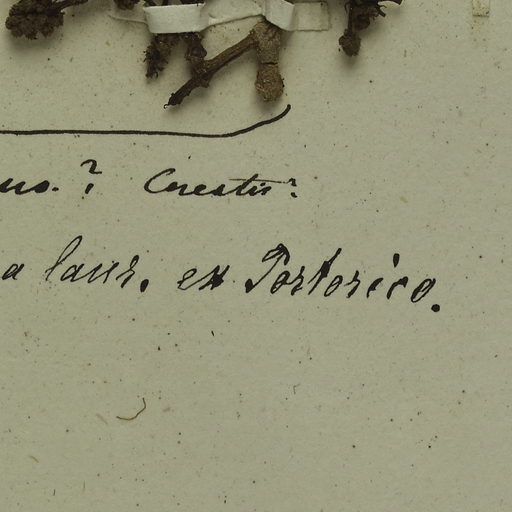 us. ? Cerestis?
a laur. ex Portorico.